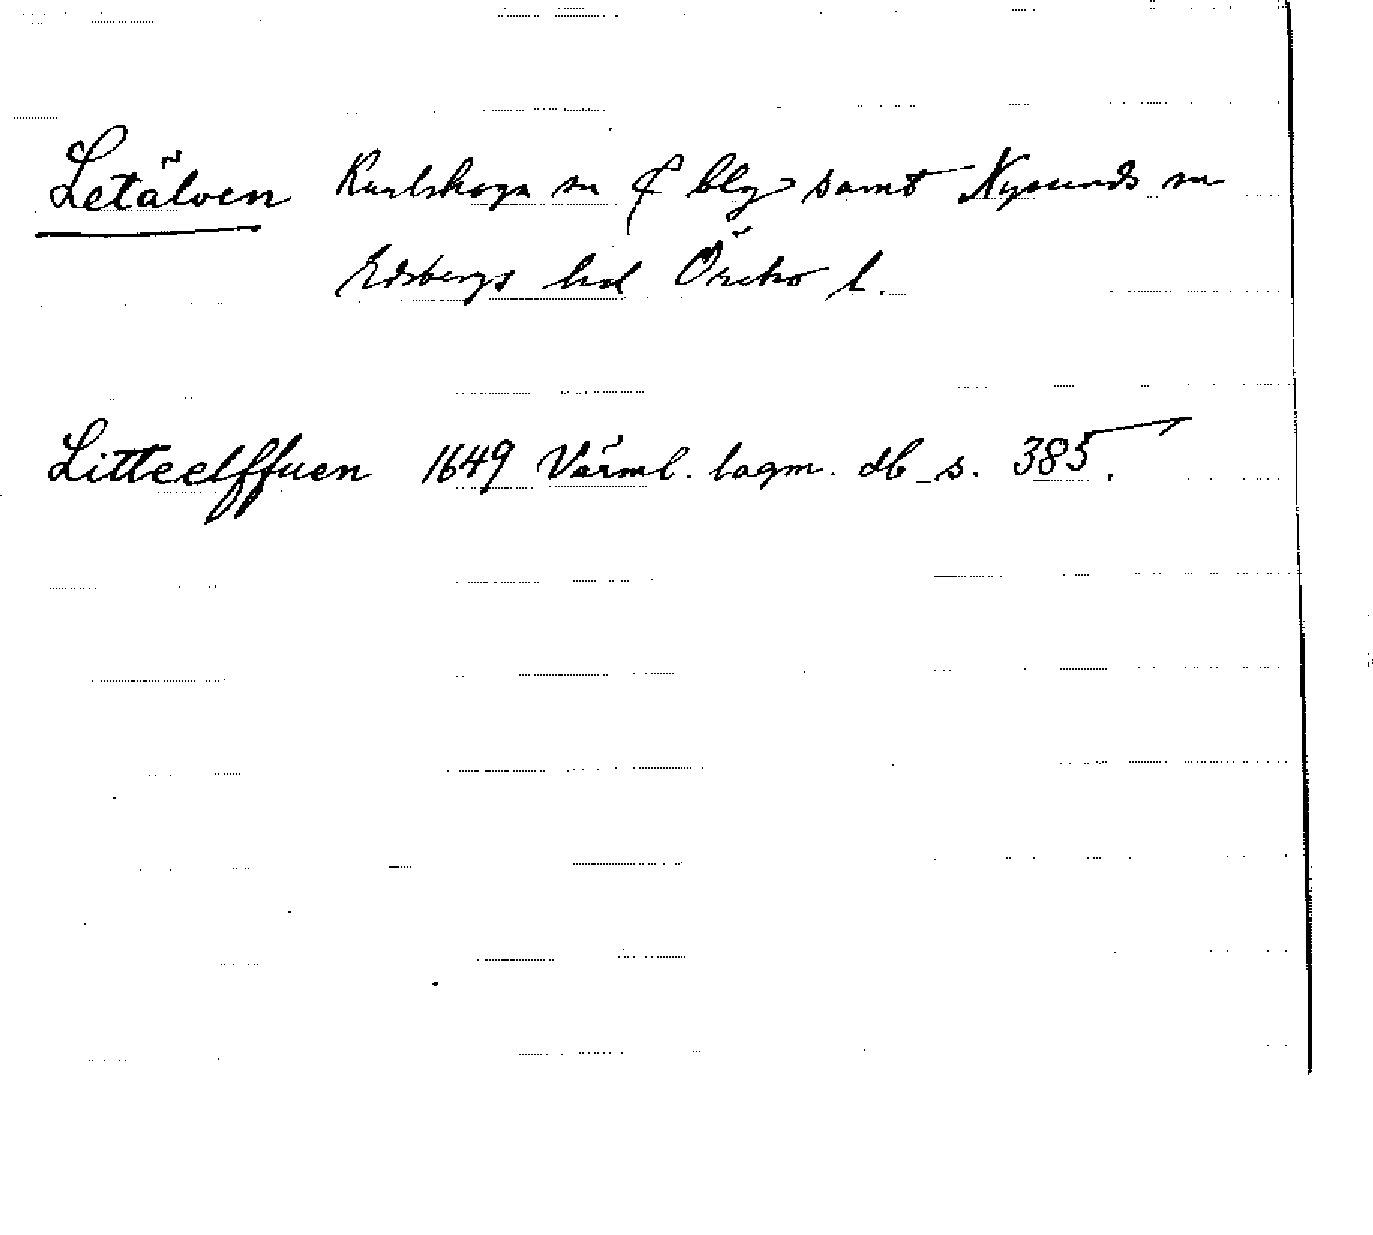 Letälven Karlskoga sn & blg samt Nysunds sn
Edsbergs hd Örebro l.
Litteelffuen 1649 Värml. lagm. db s. 385.